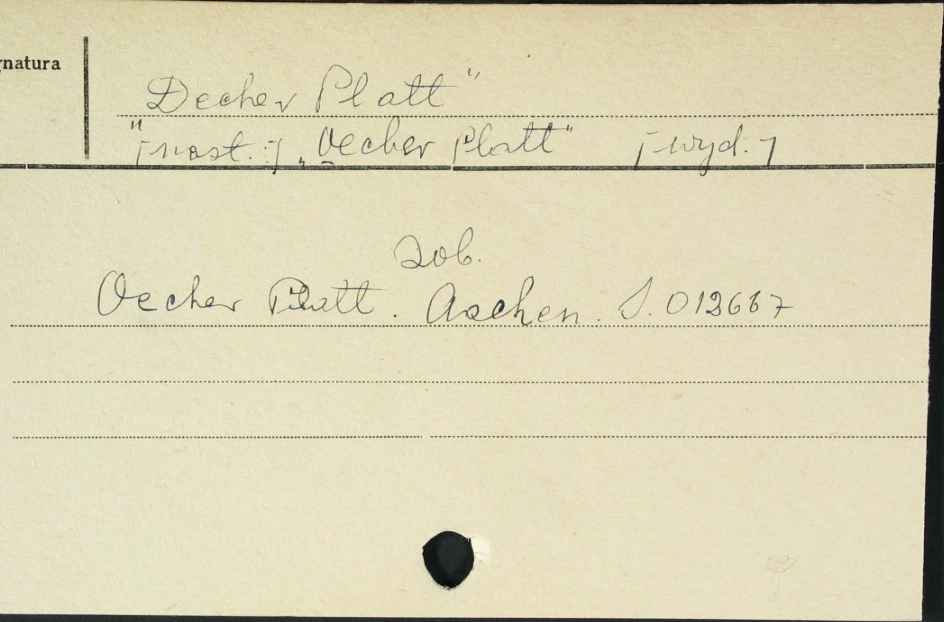 gnatura
Oecher Platt"
"[nast.:] „Oecher Platt" [wyd.]
zob.
Oecher Platt. Aachen. S. 012667